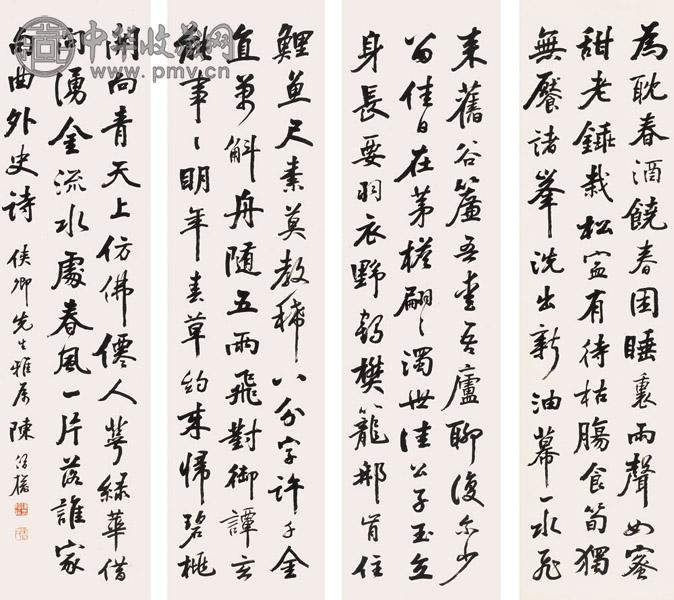 為耽春酒饒春困睡裏雨聲如蜜
甜老栽松寔有待枯腸食筍獨
無饜諸峯洗出新油幕一水飛
來舊谷簾吾愛吾廬聊復尔少
留佳日在茅檐翩〻濁世佳公子玉立
身長要羽衣野鶴樊籠那肯住
鯉魚尺素莫教稀八分字許千金
直萬斛舟隨五兩飛對御譚玄
事〻明年春草約來歸碧桃
開向青天上仿佛僊人萼綠華借
問湧金流水處春風一片落誰家
句曲外史詩
俠卿先生雅屬 陳
中华收藏网
www.pmv.cn